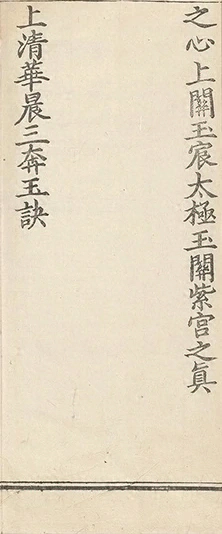 之心上關玉宸太極玉關紫宮之眞
上清華晨三奔玉訣